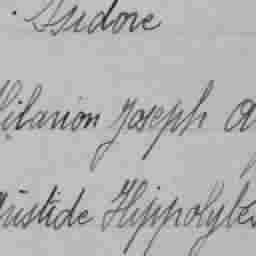 Isidore
Hilarion Joseph
Aristide Hippolyte